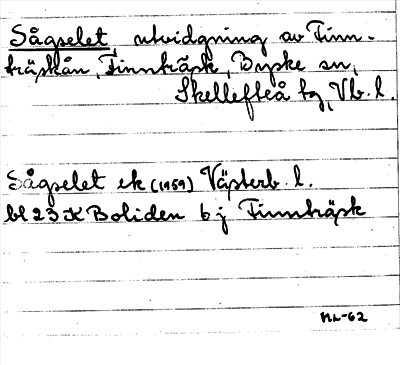 Sågselet, utvidgning av Finn-
träskån, Finnträsk, Byske sn,
Skellefteå tg, Vb. l.
Sågselet ek (1959) Västerb. l.
bl 23 K Boliden 6 j Finnträsk
ML-62